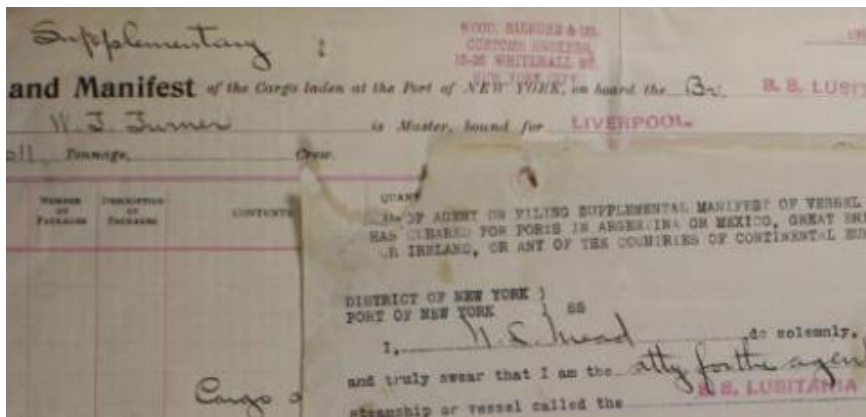 Supplementary
CUSTOMS BROKERS,
WHITEHALL ST.
NEW YORK CITY
and Manifest of the Cargo laden at the Port of NEW YORK, on board the Br. S. S. LUSIT
W. T. Turner is Master, bound for LIVERPOOL.
Tonnage, Crew.
NUMBER OF PACKAGES
DESCRIPTION OF PACKAGES
CONTENTS
QUANT
OF AGENT ON FILING SUPPLEMENTAL MANIFEST OF VESSEL
HAS CLEARED FOR PORTS IN ARGENTINA OR MEXICO, GREAT BRI
OR IRELAND, OR ANY OF THE COUNTRIES OF CONTINENTAL EUR
DISTRICT OF NEW YORK )
PORT OF NEW YORK ) SS
I, N. S. Mead, do solemnly,
and truly swear that I am the atty for the agent
Cargo
steamship or vessel called the S. S. LUSITANIA